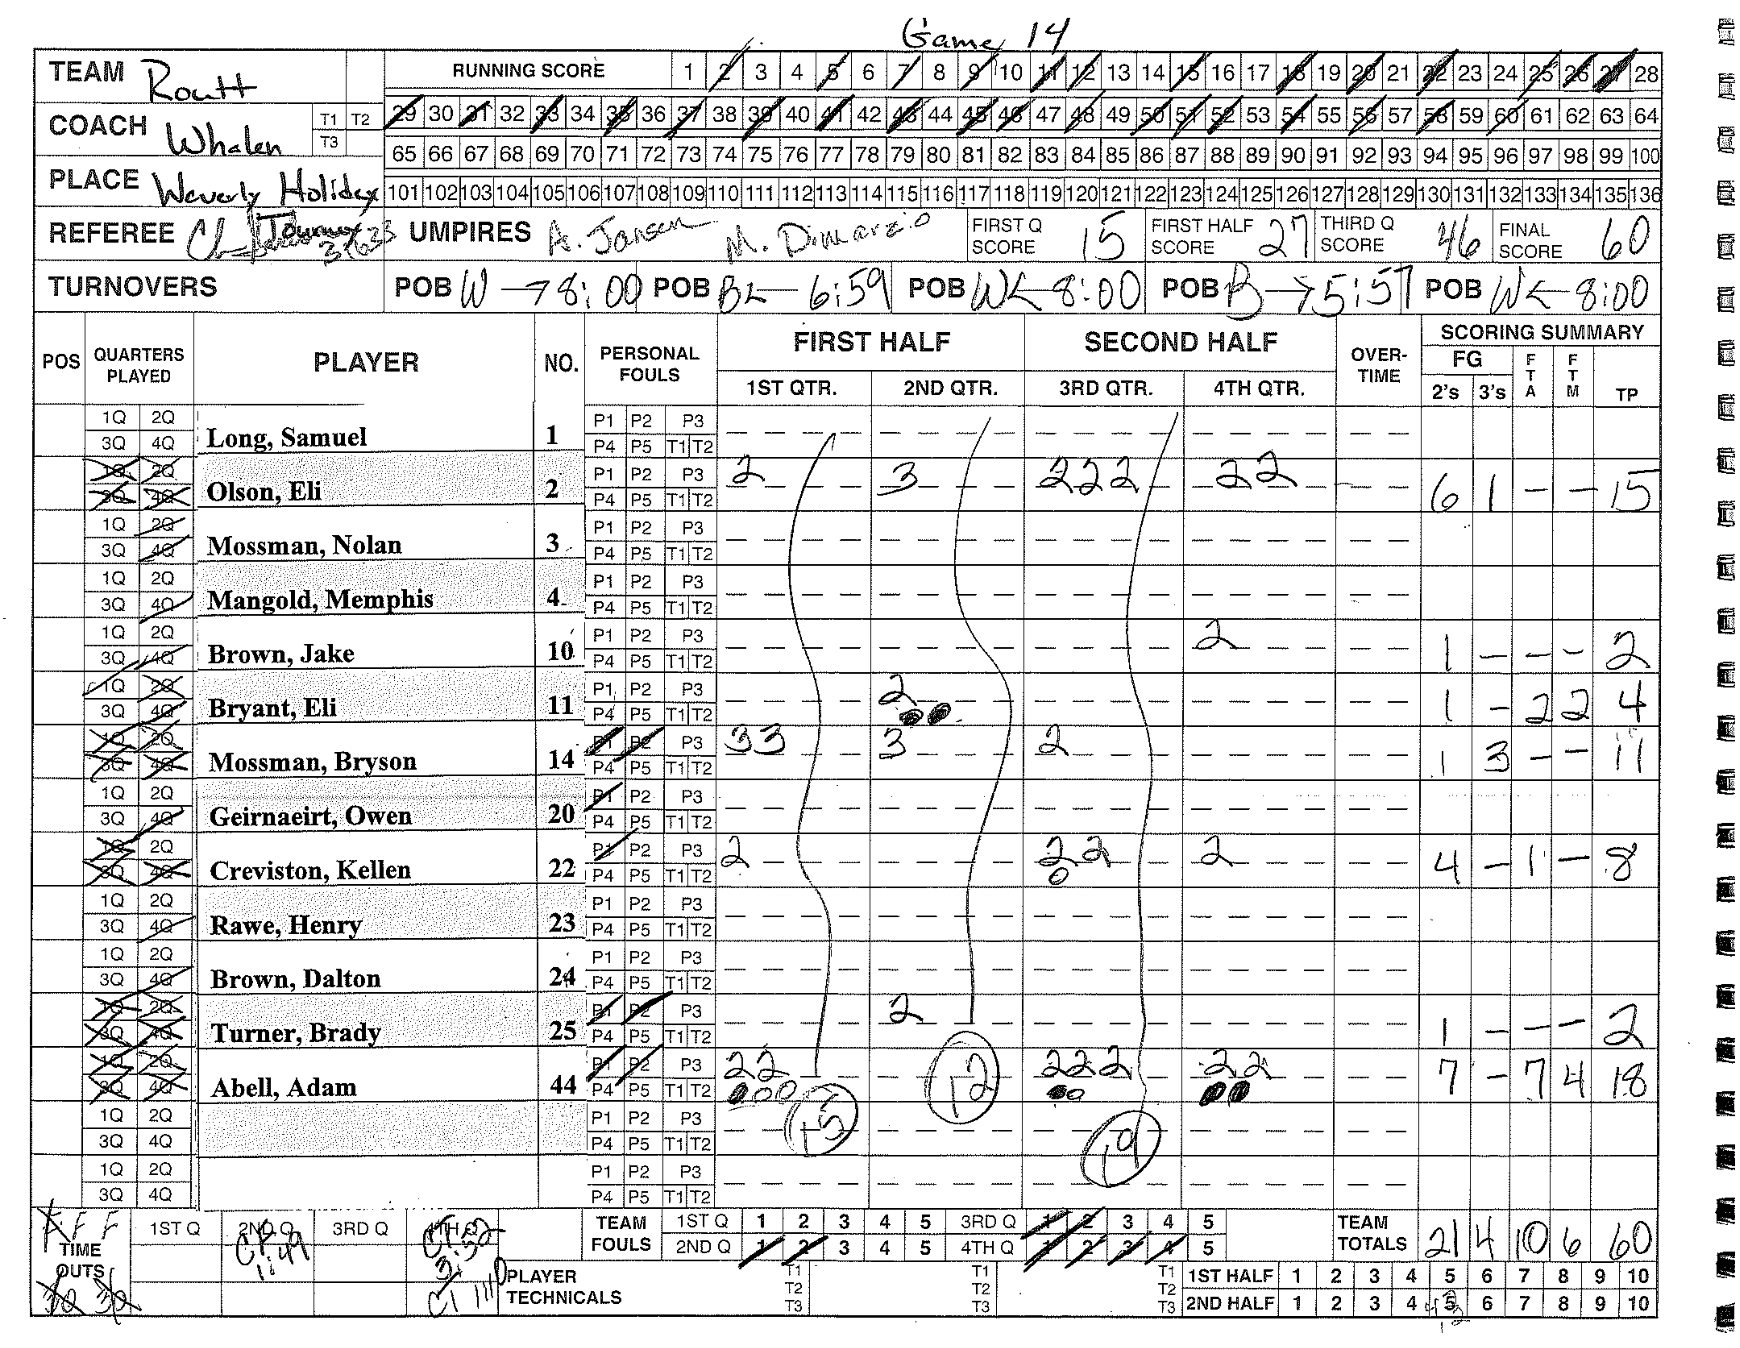 Game 14
TEAM Routt RUNNING SCORE 1 2 3 4 5 6 7 8 9 10 11 12 13 14 15 16 17 18 19 20 21 22 23 24 25 26 27 28
COACH Whalen T1 T2 T3 29 30 31 32 33 34 35 36 37 38 39 40 41 42 43 44 45 46 47 48 49 50 51 52 53 54 55 56 57 58 59 60 61 62 63 64
65 66 67 68 69 70 71 72 73 74 75 76 77 78 79 80 81 82 83 84 85 86 87 88 89 90 91 92 93 94 95 96 97 98 99 100
PLACE Waverly Holiday 101 102 103 104 105 106 107 108 109 110 111 112 113 114 115 116 117 118 119 120 121 122 123 124 125 126 127 128 129 130 131 132 133 134 135 136
REFEREE UMPIRES A. Jansen M. Dimarzio FIRST Q SCORE 15 FIRST HALF SCORE 27 THIRD Q SCORE 46 FINAL SCORE 60
TURNOVERS POB W → 8:00 POB B ← 6:59 POB W ← 8:00 POB B → 5:57 POB W ← 8:00
POS QUARTERS PLAYED PLAYER NO. PERSONAL FOULS FIRST HALF SECOND HALF OVER-TIME SCORING SUMMARY
FG FTA FTM TP
1ST QTR. 2ND QTR. 3RD QTR. 4TH QTR. 2's 3's
1Q 2Q P1 P2 P3
3Q 4Q Long, Samuel 1 P4 P5 T1 T2
1Q 2Q P1 P2 P3 2 3 222 22
3Q 4Q Olson, Eli 2 P4 P5 T1 T2 6 1 - - 15
1Q 2Q P1 P2 P3
3Q 4Q Mossman, Nolan 3 P4 P5 T1 T2
1Q 2Q P1 P2 P3
3Q 4Q Mangold, Memphis 4 P4 P5 T1 T2
1Q 2Q P1 P2 P3 2
3Q 4Q Brown, Jake 10 P4 P5 T1 T2 1 - - - 2
1Q 2Q P1 P2 P3 2
3Q 4Q Bryant, Eli 11 P4 P5 T1 T2 1 - 2 2 4
1Q 2Q P1 P2 P3 33 3 2
3Q 4Q Mossman, Bryson 14 P4 P5 T1 T2 1 3 - - 11
1Q 2Q P1 P2 P3
3Q 4Q Geirnaeirt, Owen 20 P4 P5 T1 T2
1Q 2Q P1 P2 P3 2 22 2
3Q 4Q Creviston, Kellen 22 P4 P5 T1 T2 4 - 1 - 8
1Q 2Q P1 P2 P3
3Q 4Q Rawe, Henry 23 P4 P5 T1 T2
1Q 2Q P1 P2 P3
3Q 4Q Brown, Dalton 24 P4 P5 T1 T2
1Q 2Q P1 P2 P3 2
3Q 4Q Turner, Brady 25 P4 P5 T1 T2 1 - - - 2
1Q 2Q P1 P2 P3 22 222 22
3Q 4Q Abell, Adam 44 P4 P5 T1 T2 7 - 7 4 18
1Q 2Q P1 P2 P3 15 12 19
3Q 4Q P4 P5 T1 T2
1Q 2Q P1 P2 P3
3Q 4Q P4 P5 T1 T2
F F F 1ST Q 2ND Q 3RD Q 4TH Q TEAM FOULS 1ST Q 1 2 3 4 5 3RD Q 1 2 3 4 5 TEAM TOTALS 21 4 10 6 60
TIME OUTS 1:49 3:52 2ND Q 1 2 3 4 5 4TH Q 1 2 3 4 5
30 30 PLAYER TECHNICALS T1 T2 T3 T1 T2 T3 T1 T2 T3 1ST HALF 1 2 3 4 5 6 7 8 9 10
2ND HALF 1 2 3 4 5 6 7 8 9 10